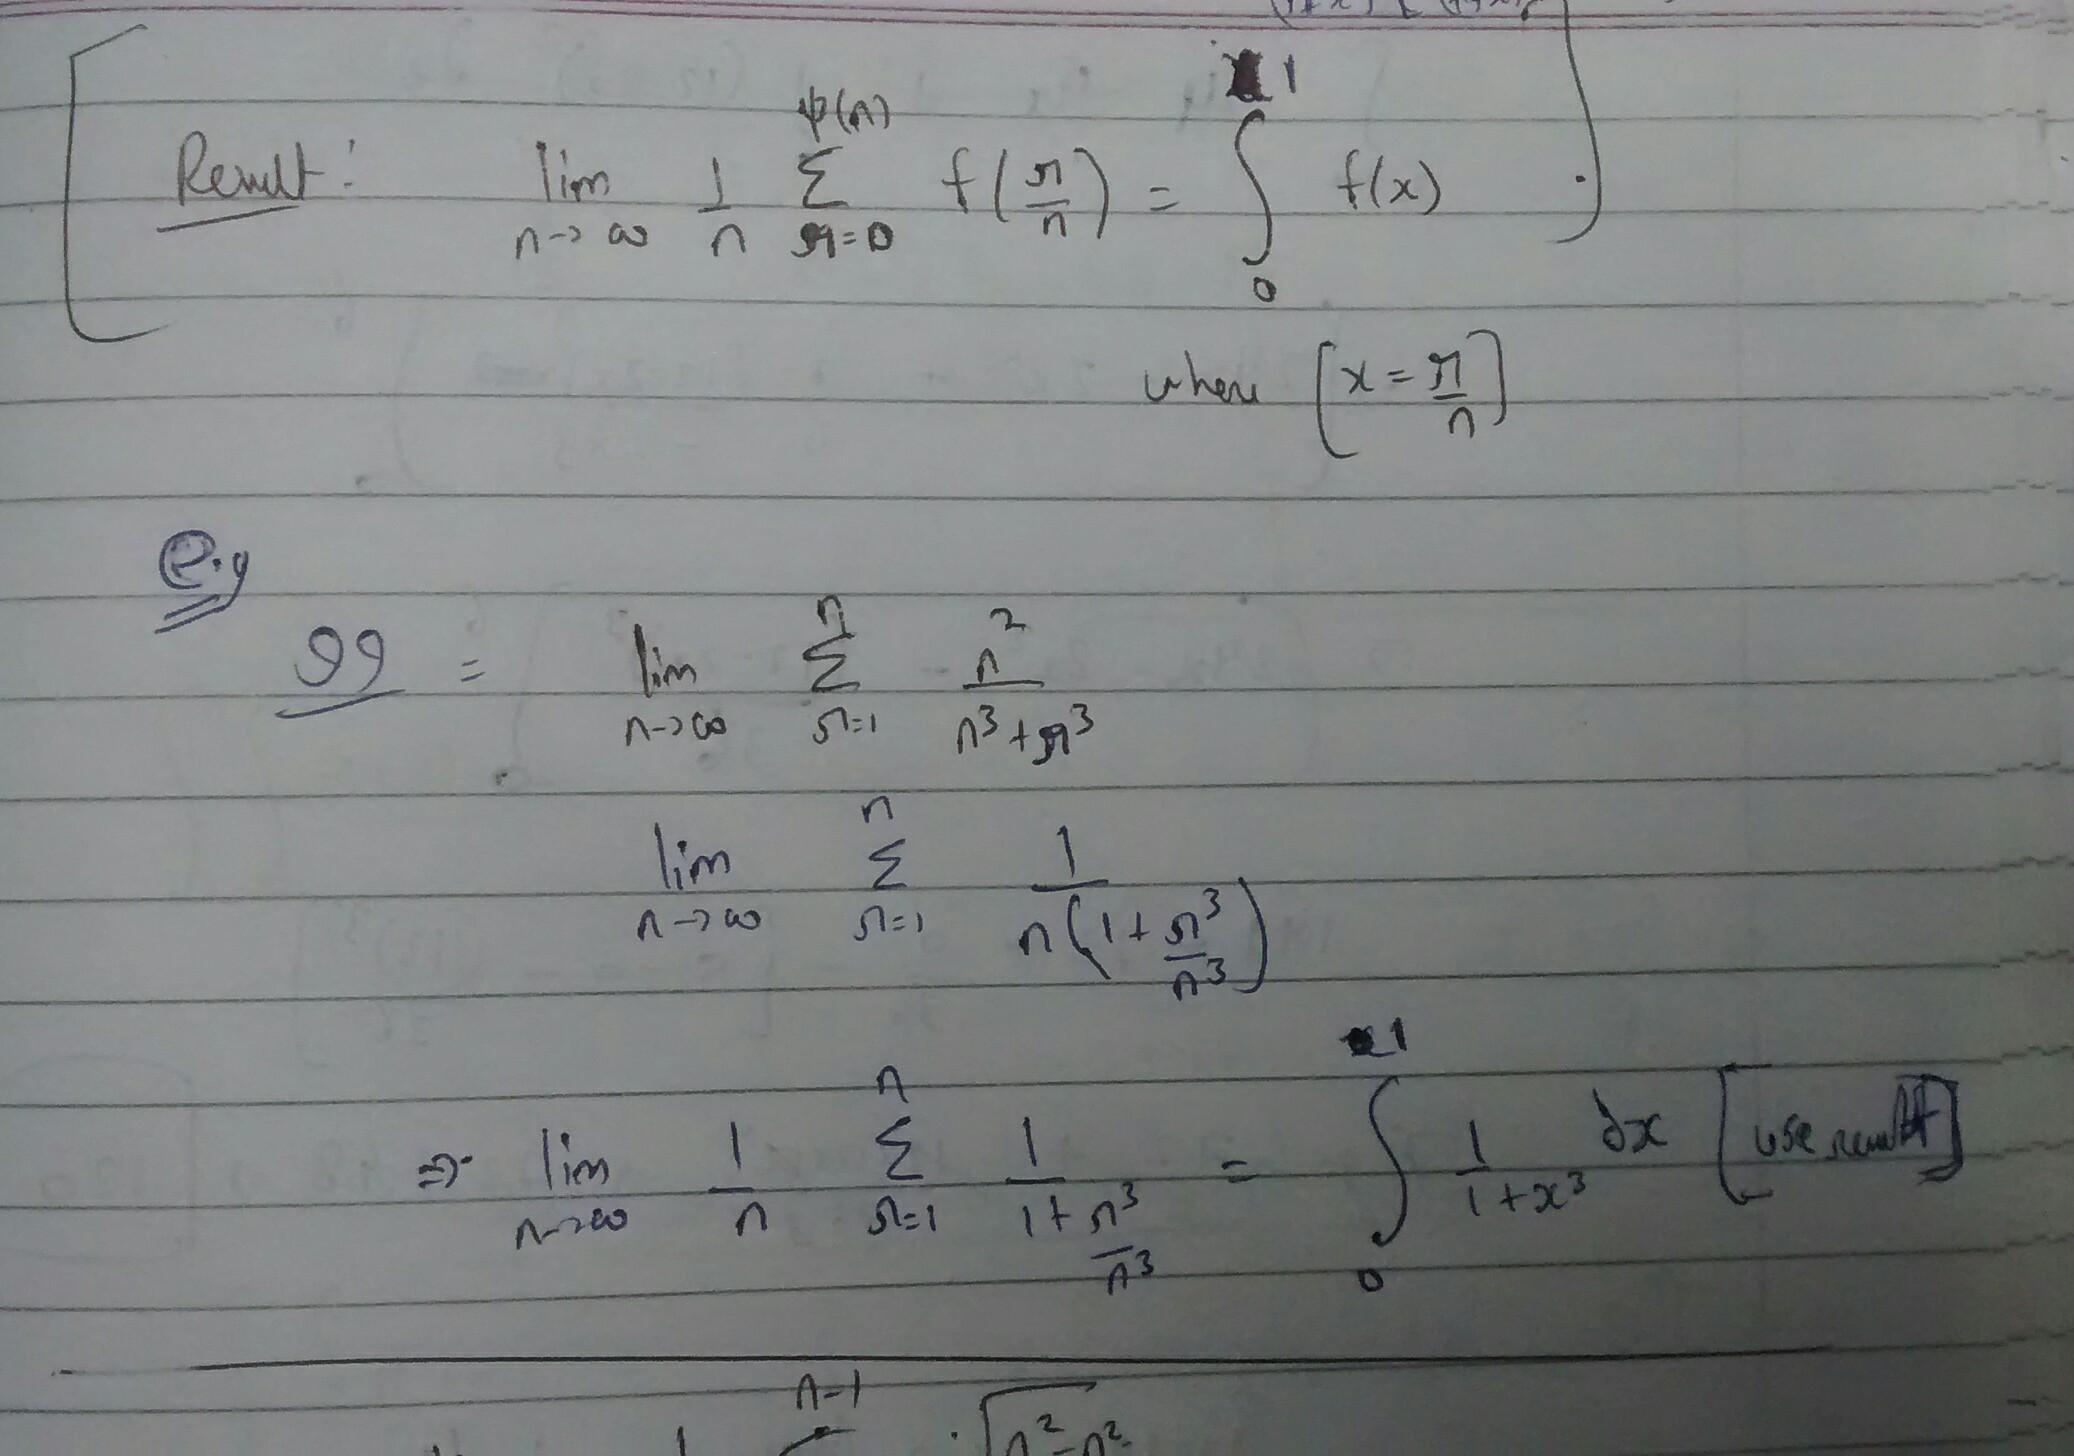 Result: lim n→∞ 1/n Σ r=0 ψ(n) f(r/n) = ∫ 0 1 f(x)
where [x = r/n]
e.g
99 = lim n→∞ Σ r=1 n n²/(n³+r³)
lim n→∞ Σ r=1 n 1/(n(1+r³/n³))
⇒ lim n→∞ 1/n Σ r=1 n 1/(1+r³/n³) = ∫ 0 1 1/(1+x³) dx [use result]
n-1